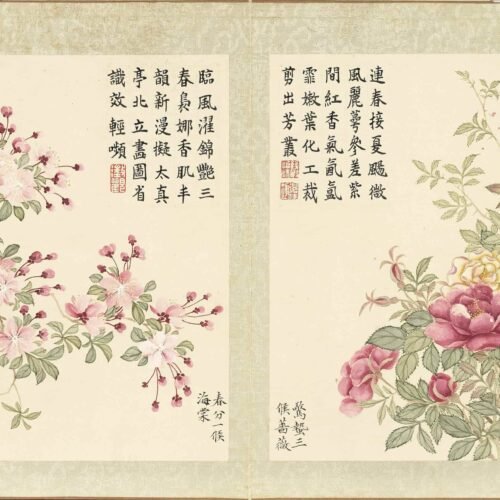 連春接夏颺微
風麗蕚參差紫
間紅香氣氤氳
霏嫩葉化工裁
剪出芳叢
驚蟄三
候薔薇
臨風濯錦艷三
春裊娜香肌丰
韻新漫擬太真
亭北立畫圖省
識效輕嚬
春分一候
海棠